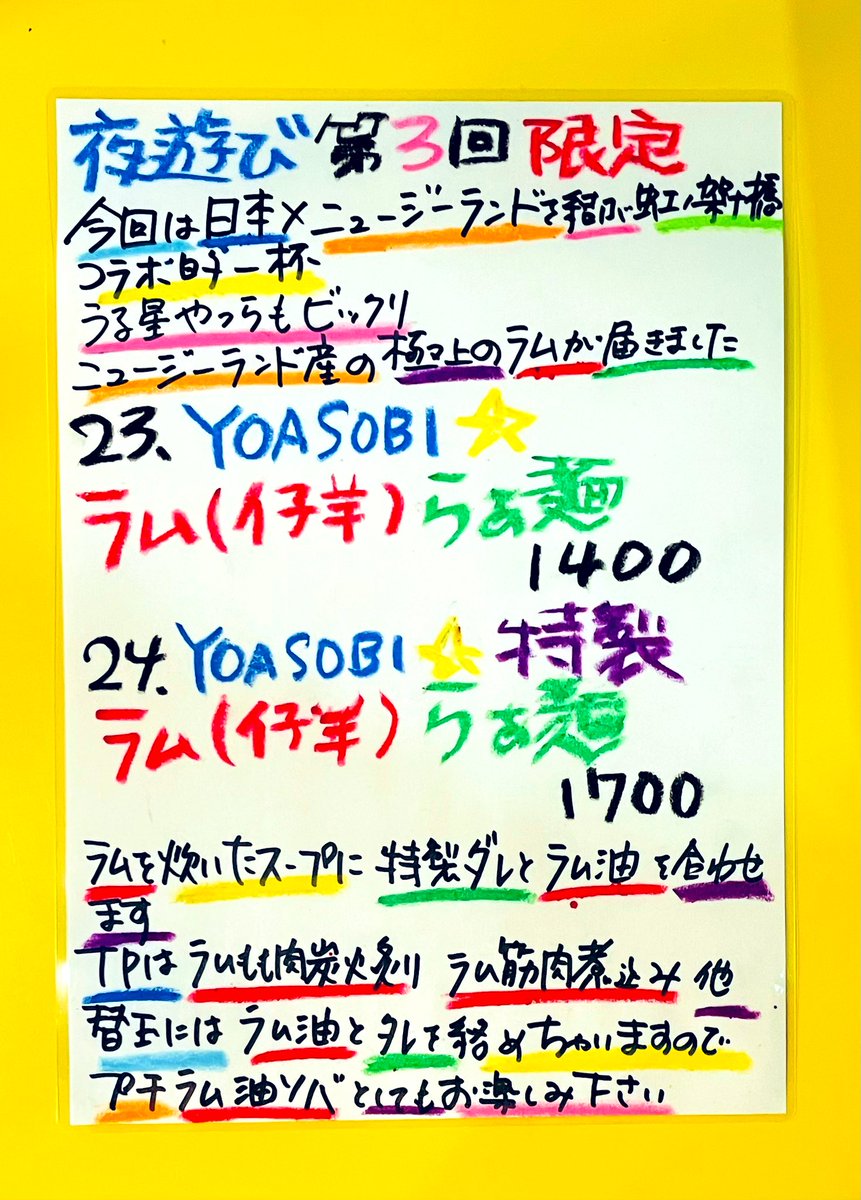 夜遊び 第3回 限定
今回は日本×ニュージーランドを結ぶ虹ノ架け橋
コラボ的一杯
うる星やつらもビックリ
ニュージーランド産の極上のラムが届きました
23. YOASOBI☆
ラム(仔羊)らぁ麺
1400
24. YOASOBI☆特製
ラム(仔羊)らぁ麺
1700
ラムを炊いたスープに 特製ダレとラム油を合わせ
ます
TPはラムもも肉炭火炙り ラム筋肉煮込み 他
替玉にはラム油とタレを絡めちゃいますので
プチラム油ソバとしてもお楽しみ下さい